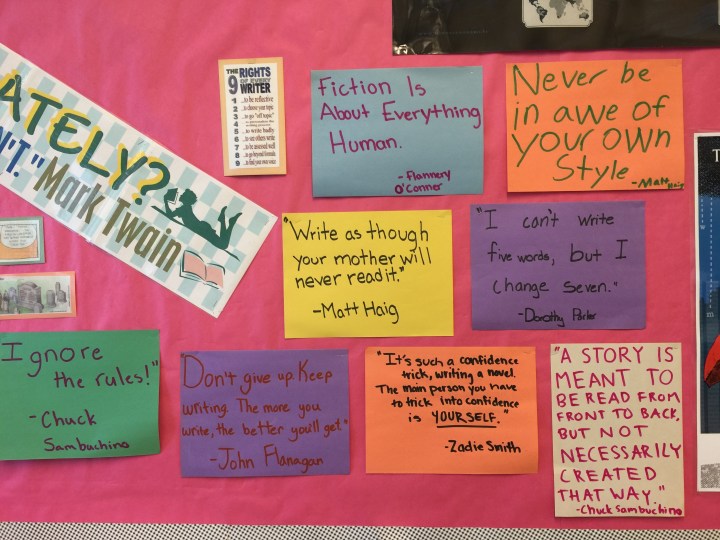 ATELY?
N'T." Mark Twain
THE 9 RIGHTS
OF EVERY
WRITER
1 ...to be reflective
2 ...to choose your topic
3 ...to go "off topic"
5 ...to write badly
7 ...to be assessed well
8 ...to go beyond formula
9 ...to find your own voice
Fiction Is
About Everything
Human.
- Flannery
O'Conner
Never be
in awe of
your own
Style
-Matt Haig
"Write as though
your mother will
never read it."
-Matt Haig
"I can't write
five words, but I
change seven."
-Dorothy Parker
Ignore
the rules!"
-Chuck
Sambuchino
"Don't give up. Keep
writing. The more you
write, the better you'll get."
-John Flanagan
"It's such a confidence
trick, writing a novel.
The main person you have
to trick into confidence
is YOURSELF."
-Zadie Smith
"A STORY IS
MEANT TO
BE READ FROM
FRONT TO BACK,
BUT NOT
NECESSARILY
CREATED
THAT WAY."
-Chuck Sambuchino